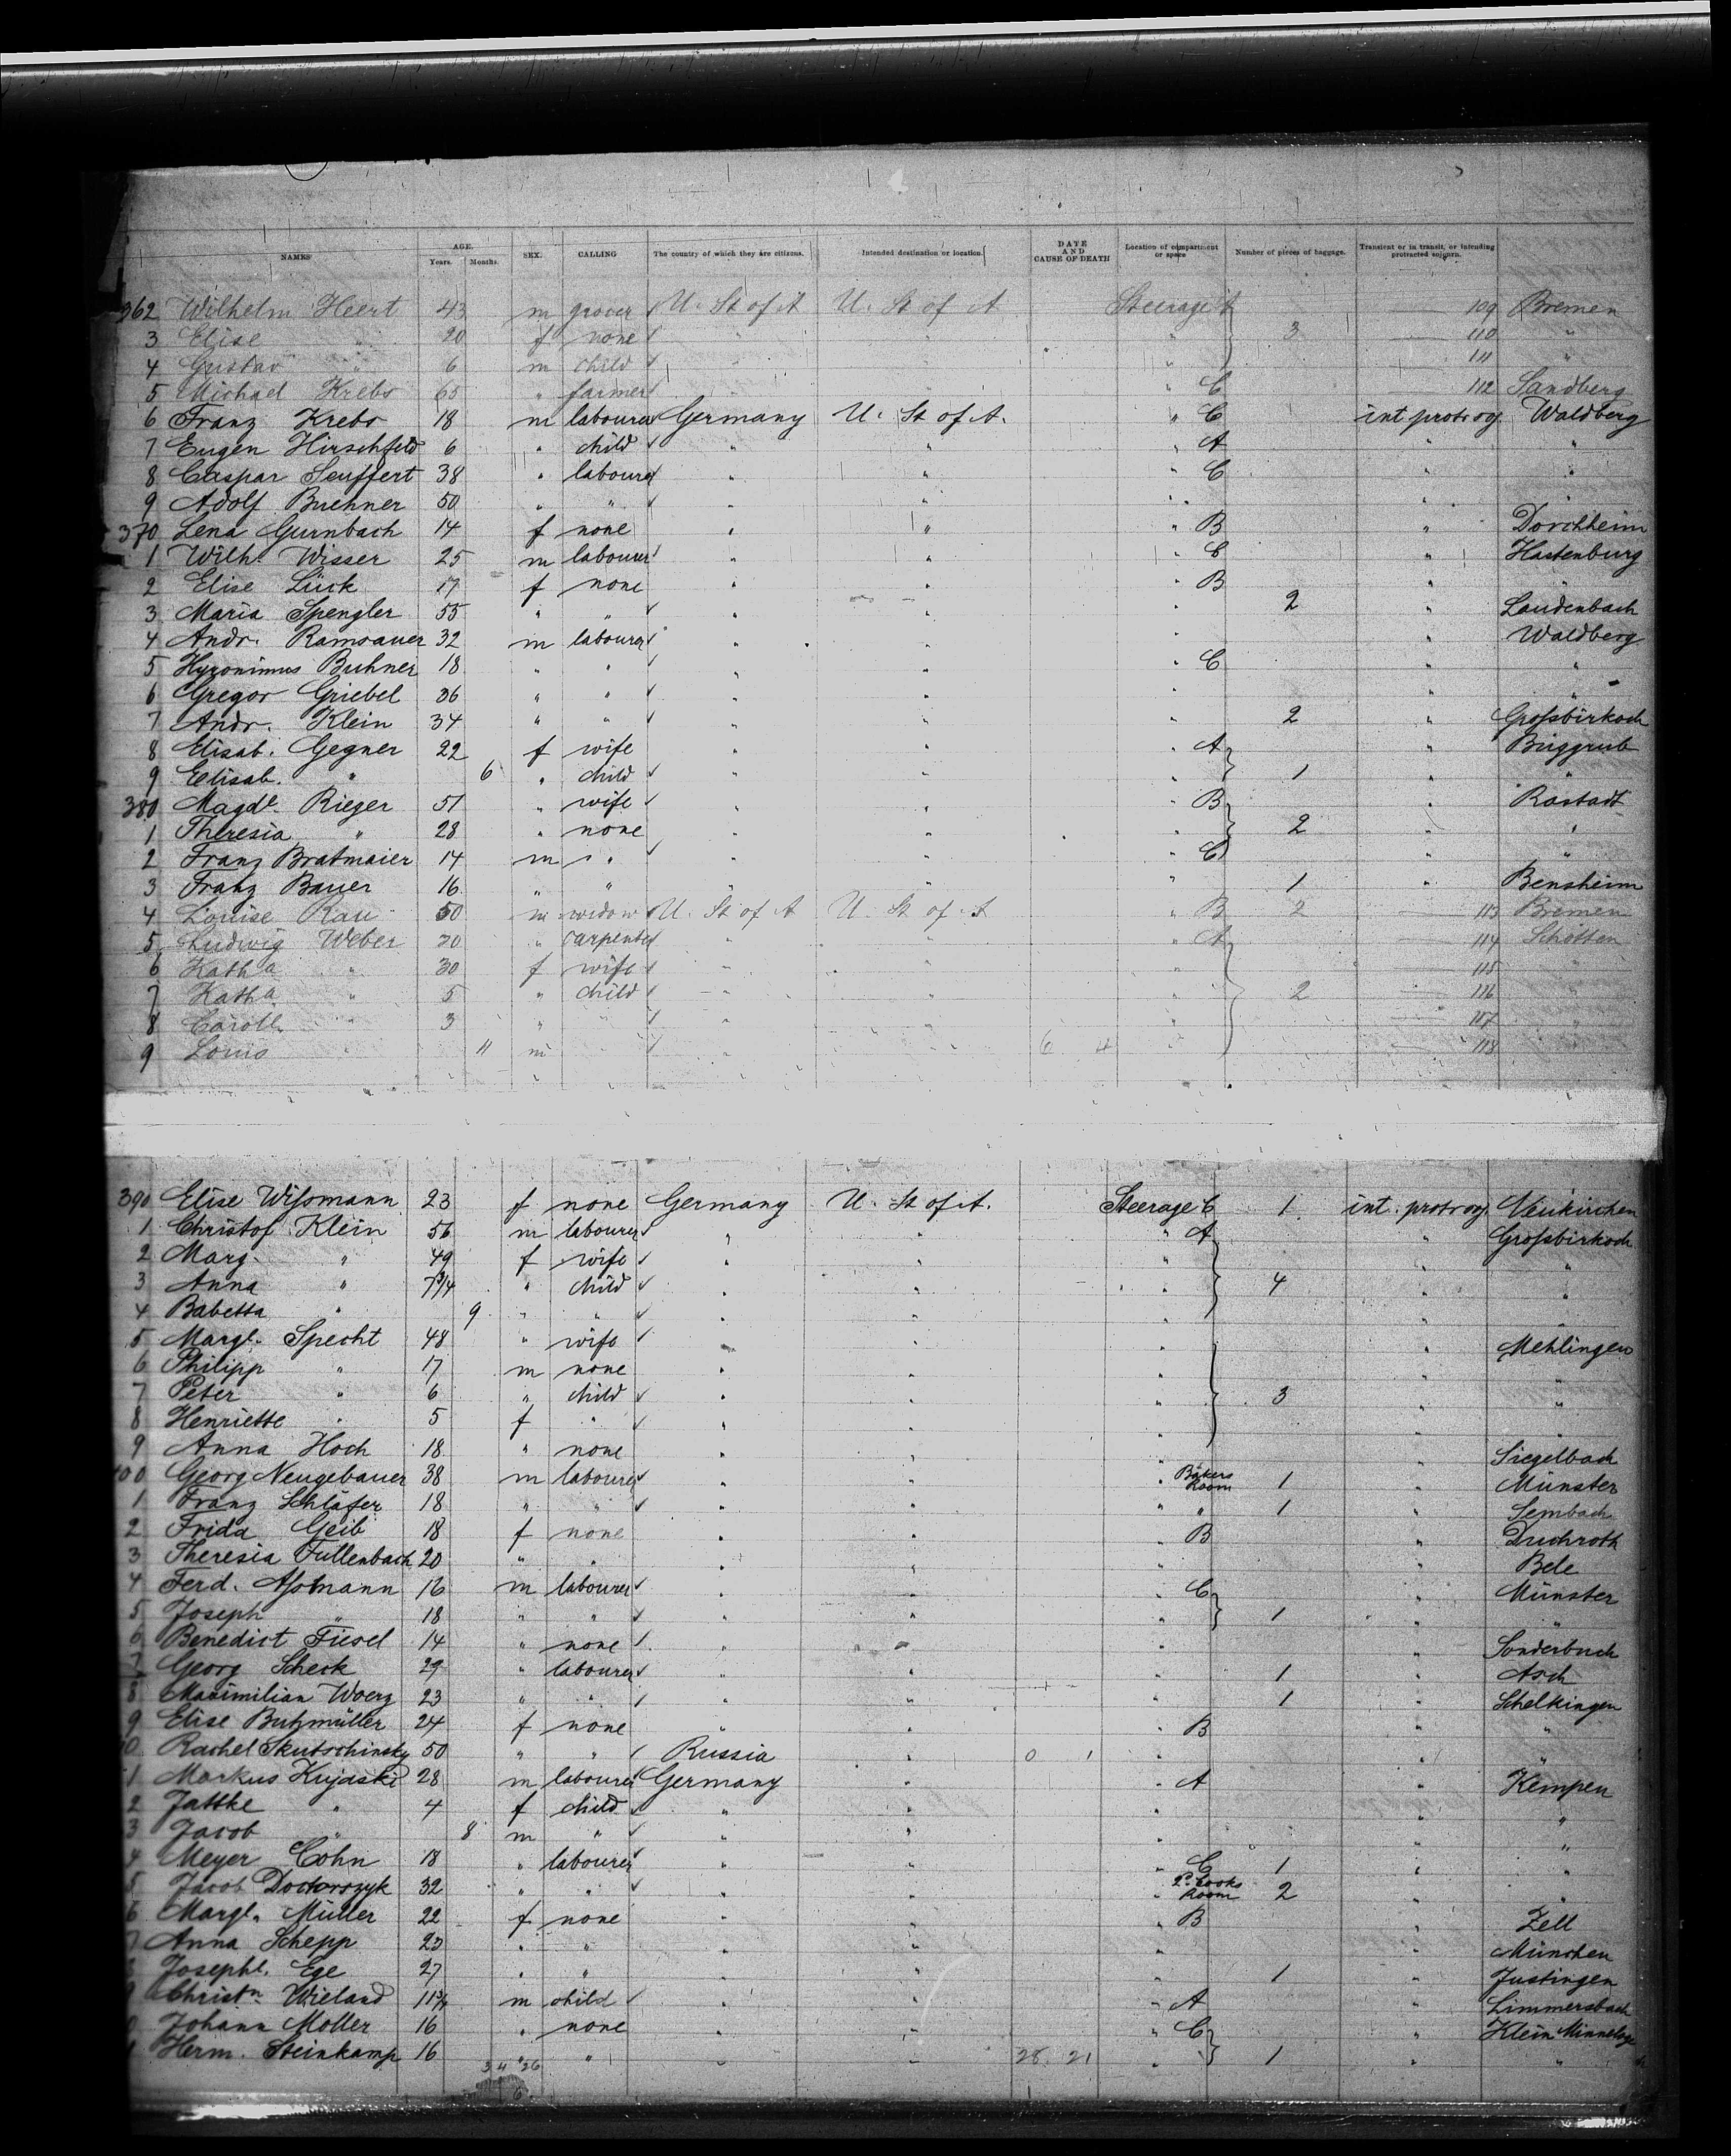 NAMES AGE. Years. Months. SEX. CALLING The country of which they are citizens. Intended destination or location. DATE AND CAUSE OF DEATH Location of compartment or space Number of pieces of baggage. Transient or in transit, or intending protracted sojourn.
362 Wilhelm Heert 43 m grocer U. St of A U. St of A Steerage A 109 Bremen
3 Elise " 20 f none " " " 3 110 "
4 Gustav " 6 m child " " " 111 "
5 Michael Krebs 65 " farmer " C 112 Sandberg
6 Franz Krebs 18 m labourer Germany U. St of A. " C int protr og. Waldberg
7 Eugen Hirschfeld 6 " child " " " A " "
8 Caspar Seuffert 38 " labourer " " " C " "
9 Adolf Buehner 50 " " " " " " "
370 Lena Gurnbach 14 f none " " " B " Dorchheim
1 Wilh. Wisser 25 m labourer " " " C " Hastenburg
2 Elise Lück 17 f none " " " B " "
3 Maria Spengler 55 " " " " " 2 " Laudenbach
4 Andr. Ramsauer 32 m labourer " " " " Waldberg
5 Hyronimus Buhner 18 " " " " " C " "
6 Gregor Griebel 36 " " " " " " "
7 Andr. Klein 34 " " " " " 2 " Großbirkach
8 Elisab. Gegner 22 f wife " " " A " Buggrub
9 Elisab. " 6 " child " " " 1 " "
380 Magdl. Rieger 51 " wife " " " B " Rastadt
1 Theresia " 28 " none " " " 2 " "
2 Franz Bratmaier 14 m " " " " C " "
3 Franz Bauer 16 " " " " " 1 " Bensheim
4 Louise Rau 50 m widow U. St of A U. St of A " B 2 113 Bremen
5 Ludwig Weber 30 " carpenter " " " A 114 Schotten
6 Katha " 30 f wife " " " 115 "
7 Katha " 5 " child " " " 2 116 "
8 Caroll. " 3 " " " " " 117 "
9 Louis " 11 m " " " 6 4 " 118 "
390 Elise Wißmann 23 f none Germany U. St of A. Steerage C 1 int. protr og. Neukirchen
1 Christof Klein 56 m labourer " " " A " Großbirkach
2 Marg. " 49 f wife " " " " "
3 Anna " 7 3/4 " child " " " 4 " "
4 Babetta " 9 " " " " " "
5 Margt. Specht 48 " wife " " " " Mehlingen
6 Philipp " 17 m none " " " " "
7 Peter " 6 " child " " " 3 " "
8 Henriette " 5 f " " " " " "
9 Anna Hoch 18 " none " " " " Siegelbach
400 Georg Neugebauer 38 m labourer " " " Bakers Room 1 " Münster
1 Franz Schläfer 18 " " " " " " 1 " Sembach
2 Frida Geib 18 f none " " " B " Duchroth
3 Theresia Fullenbach 20 " " " " " " Bele
4 Ferd. Aßmann 16 m labourer " " " C " Münster
5 Joseph " 18 " " " " " 1 " "
6 Benedict Fiesel 14 " none " " " " Sonderbuch
7 Georg Scheck 29 " labourer " " " 1 " Asch
8 Maximilian Woerz 23 " " " " " 1 " Schelkingen
9 Elise Butzmüller 24 f none " " " B " "
10 Rachel Skutschinsky 50 " " Russia " 0 1 " " "
1 Markus Kujaski 28 m labourer Germany " " A " Kempen
2 Jattke " 4 f child " " " " "
3 Jacob " 8 m " " " " " "
4 Meyer Cohn 18 " labourer " " " C 1 " "
5 Jacob Doctorszyk 32 " " " " " 2d Cooks Room 2 " "
6 Margt. Müller 22 f none " " " B " Zell
7 Anna Schepp 23 " " " " " " München
8 Josephl. Ege 27 " " " " " 1 " Justingen
9 Christn. Wieland 11 m child " " " A " Limmersbach
0 Johann Moller 16 " none " " " C " Klein
1 Herm. Steinkamp 16 " " " " 28 21 " 1 " "
34 26
6